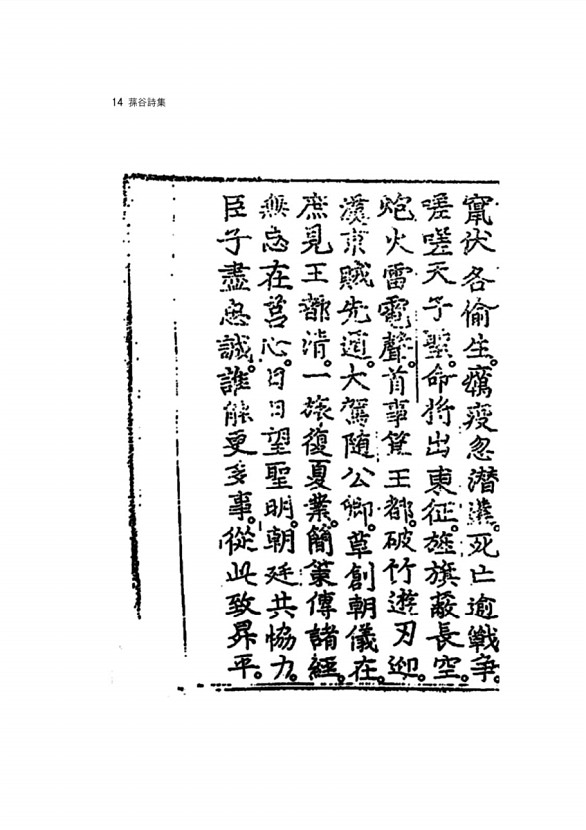 14 蓀谷詩集
竄伏各偷生。癘疫忽潛。死亡逾戰爭。
嗟嗟天子聖。命將出東征。旌旗蔽長空。
炮火雷電聲。首事箕王都。破竹遊刃迎。
漢京賊先遁。大駕隨公卿。草創朝儀在。
庶見王都淸。一旅復夏業。簡策傳諸經。
無忘在莒心。日日望聖明。朝廷共恊力。
臣子盡忠誠。誰能更多事。從此致昇平。